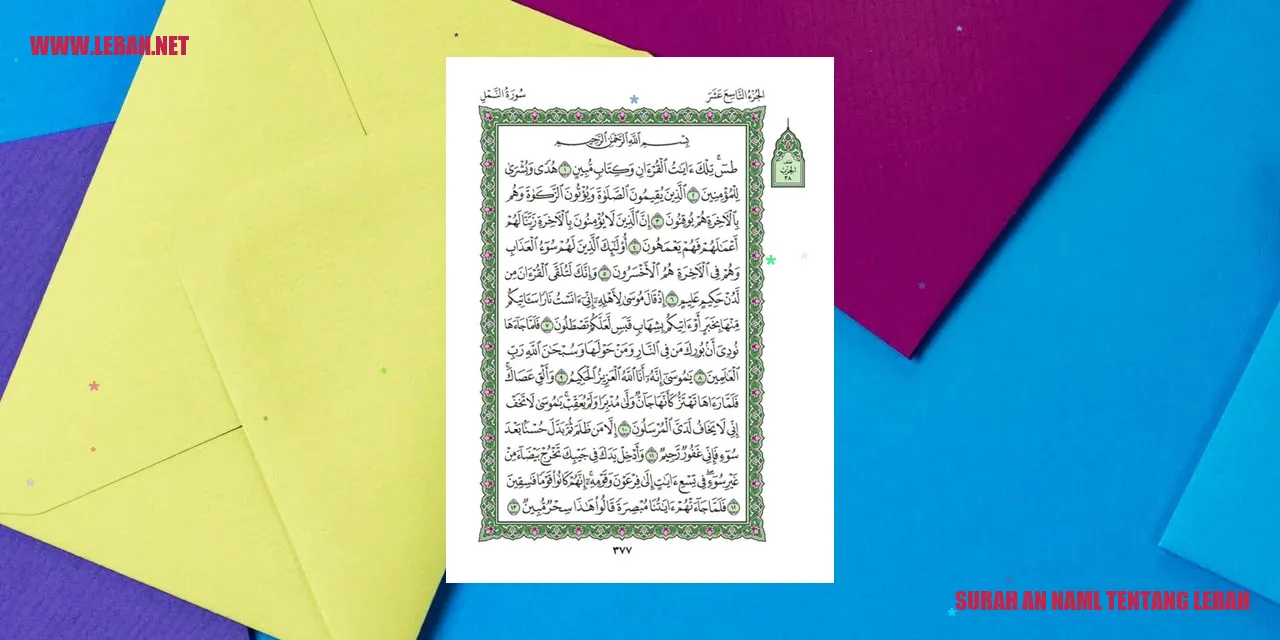 WWW.LEBAH.NET
الجزء التاسع عشر
سورة النمل
بسم الله الرحمن الرحيم
طسٓ ۚ تِلْكَ ءَايَٰتُ ٱلْقُرْءَانِ وَكِتَابٍ مُّبِينٍ ١ هُدًى وَبُشْرَىٰ
لِلْمُؤْمِنِينَ ٢ ٱلَّذِينَ يُقِيمُونَ ٱلصَّلَوٰةَ وَيُؤْتُونَ ٱلزَّكَوٰةَ وَهُم
بِٱلْءَاخِرَةِ هُمْ يُوقِنُونَ ٣ إِنَّ ٱلَّذِينَ لَا يُؤْمِنُونَ بِٱلْءَاخِرَةِ زَيَّنَّا لَهُمْ
أَعْمَٰلَهُمْ فَهُمْ يَعْمَهُونَ ٤ أُو۟لَٰٓئِكَ ٱلَّذِينَ لَهُمْ سُوٓءُ ٱلْعَذَابِ
وَهُمْ فِى ٱلْءَاخِرَةِ هُمُ ٱلْأَخْسَرُونَ ٥ وَإِنَّكَ لَتُلَقَّى ٱلْقُرْءَانَ مِن
لَّدُنْ حَكِيمٍ عَلِيمٍ ٦ إِذْ قَالَ مُوسَىٰ لِأَهْلِهِۦٓ إِنِّىٓ ءَانَسْتُ نَارًا سَـَٔاتِيكُم
مِّنْهَا بِخَبَرٍ أَوْ ءَاتِيكُم بِشِهَابٍ قَبَسٍ لَّعَلَّكُمْ تَصْطَلُونَ ٧ فَلَمَّا جَآءَهَا
نُودِىَ أَنۢ بُورِكَ مَن فِى ٱلنَّارِ وَمَنْ حَوْلَهَا وَسُبْحَٰنَ ٱللَّهِ رَبِّ
ٱلْعَٰلَمِينَ ٨ يَٰمُوسَىٰٓ إِنَّهُۥٓ أَنَا ٱللَّهُ ٱلْعَزِيزُ ٱلْحَكِيمُ ٩ وَأَلْقِ عَصَاكَ ۚ
فَلَمَّا رَءَاهَا تَهْتَزُّ كَأَنَّهَا جَآنٌّ وَلَّىٰ مُدْبِرًا وَلَمْ يُعَقِّبْ ۚ يَٰمُوسَىٰ لَا تَخَفْ
إِنِّى لَا يَخَافُ لَدَىَّ ٱلْمُرْسَلُونَ ١٠ إِلَّا مَن ظَلَمَ ثُمَّ بَدَّلَ حُسْنًۢا بَعْدَ
سُوٓءٍ فَإِنِّى غَفُورٌ رَّحِيمٌ ١١ وَأَدْخِلْ يَدَكَ فِى جَيْبِكَ تَخْرُجْ بَيْضَآءَ مِنْ
غَيْرِ سُوٓءٍ ۖ فِى تِسْعِ ءَايَٰتٍ إِلَىٰ فِرْعَوْنَ وَقَوْمِهِۦٓ ۚ إِنَّهُمْ كَانُوا۟ قَوْمًا فَٰسِقِينَ
١٢ فَلَمَّا جَآءَتْهُمْ ءَايَٰتُنَا مُبْصِرَةً قَالُوا۟ هَٰذَا سِحْرٌ مُّبِينٌ ١٣
نصف
الحزب
٣٨
٣٧٧
SURAH AN NAML TENTANG LEBAH